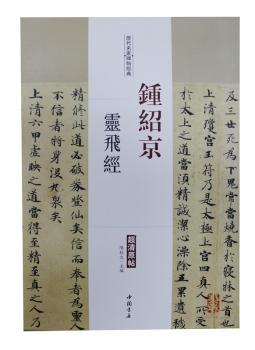 歷代名家碑帖經典
鍾紹京
靈飛經
超清原帖
中國書店
及三世死為下鬼常當燒香於寢林之首也
上清瓊宮玉符乃是太極上宮四真人所受
於太上之道當須精誠潔心澡除五累遺穢
精修此道必破券登仙矣信而奉者為靈人
不信者將身沒九泉矣
上清六甲虛映之道當得至精至真之人乃